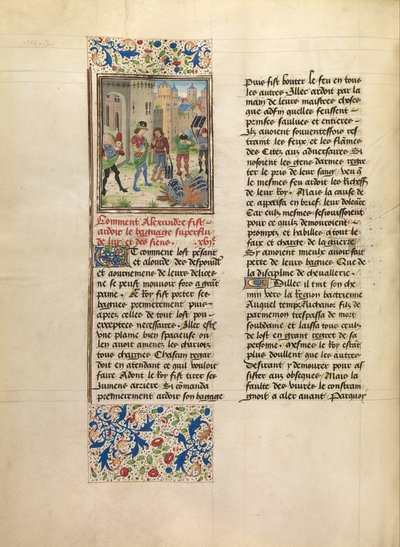 Comment Alexandre fist
ardoir le bagaige superflu
de luy et des siens. xvje.
Et comment lost pesant
et alourde des despoulles
et aournemens de leurs delices
ne se peust mouvoir fors a grant
paine. Le Roy fist porter ses
bagues premierement puis
apres celles de tout lost pou
exceptees necessaires. Illec est
une plaine bien spacieuse ou
len avoit amenes les chariots
tous chargies. Chascun regar
doit en attendant ce quil vouloit
faire. Adont le Roy fist tirer ses
iumens arriere. Si comanda
premierement ardoir son bagage
Puis fist bouter le feu en tous
les autres. Illec ardoit par la
main de leurs maistres choses
que adfin quelles feussent
prinses saulves et entieres
Ilz avoient souventesfois res
traint les feux et les flames
des Cites aux adversaires. Si
nosoient les gens darmes regre
ter le pris de leur sang veu que
le mesmes feu ardoit les Richesses
de leur Roy. Mais la cause de
ce appaisa en brief leur doleance
Car eulx mesmes sesioissoient
pour ce quilz demouroient
promptez et habilles a tout le
faix et charge de la guerre
Sy amoient mieulx avoir fait
perte de leurs bagues Que de
la discipline de chevallerie.
Dillec il tint son che
min vers la Region bactrienne
Auquel temps Nichanor filz de
parmenon trespassa de mort
soubdaine et laissa tous ceulx
de lost en grant regret de sa
personne. mesmes le Roy estoit
plus doullent que les autres
desirant y demourer pour as
sister aux obseques. Mais la
faulte des vivres le constraing
gnoit a aler avant. Parquoy